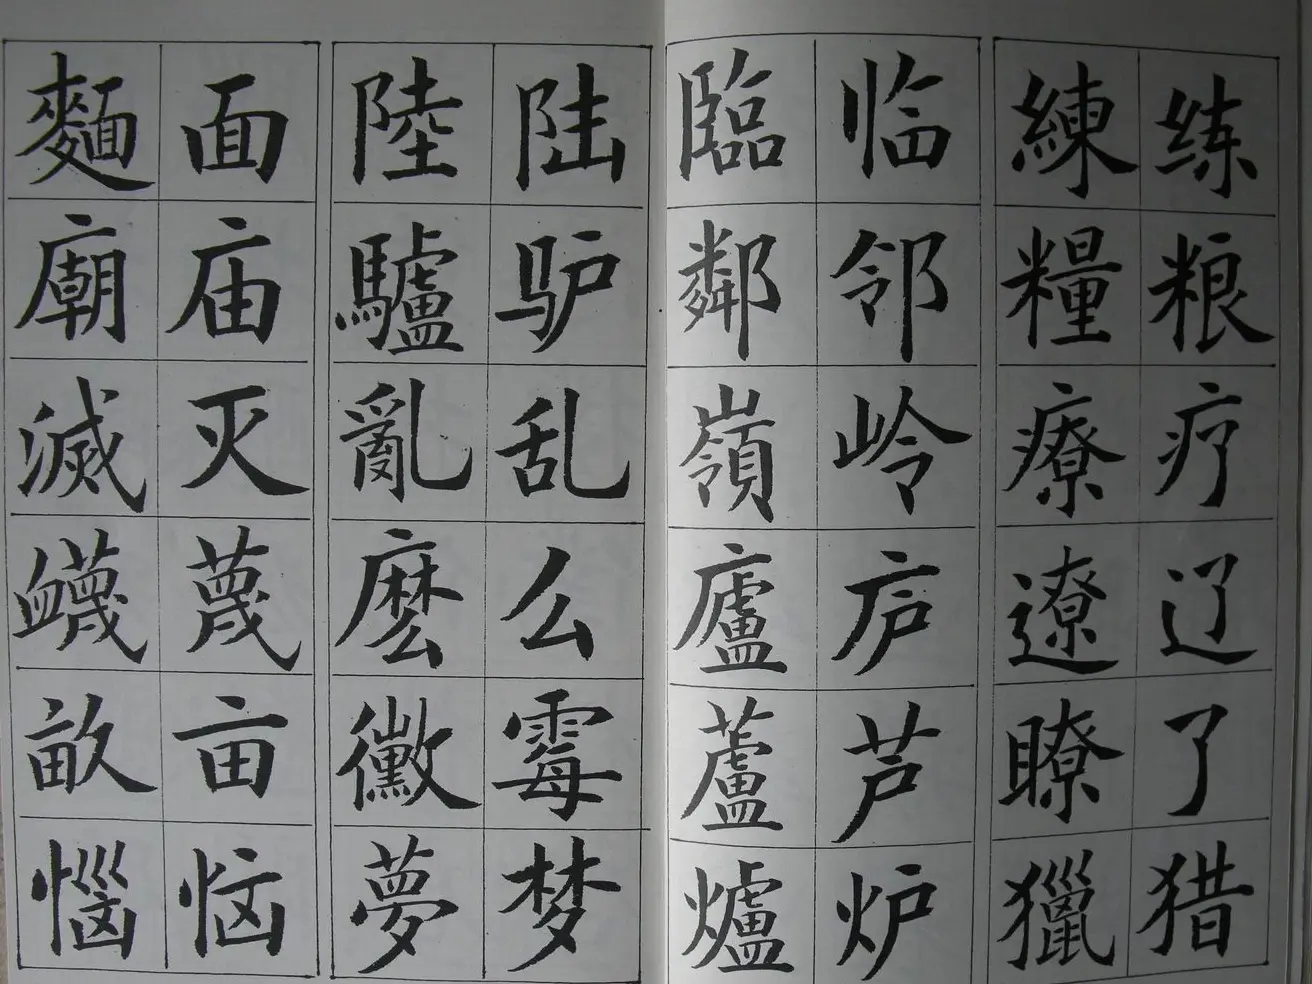 练粮疗辽了猎
練糧療遼瞭獵
临邻岭庐芦炉
臨鄰嶺廬蘆爐
陆驴乱么霉梦
陸驢亂麽黴夢
面庙灭蔑亩恼
麵廟滅衊畝惱